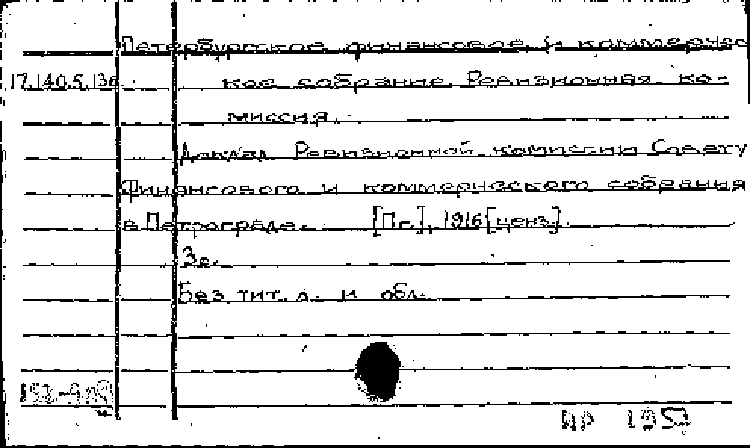 Петербургское финансовое и коммерчес
17.140.5.136 кое собрание. Ревизионная ко-
миссия.
Доклад Ревизионной комиссии Совету
Финансового и коммерческого собрания
в Петрограде. [Пг.], 1916 [ценз].
3с.
Без тит. л. и обл.
ИР 1957